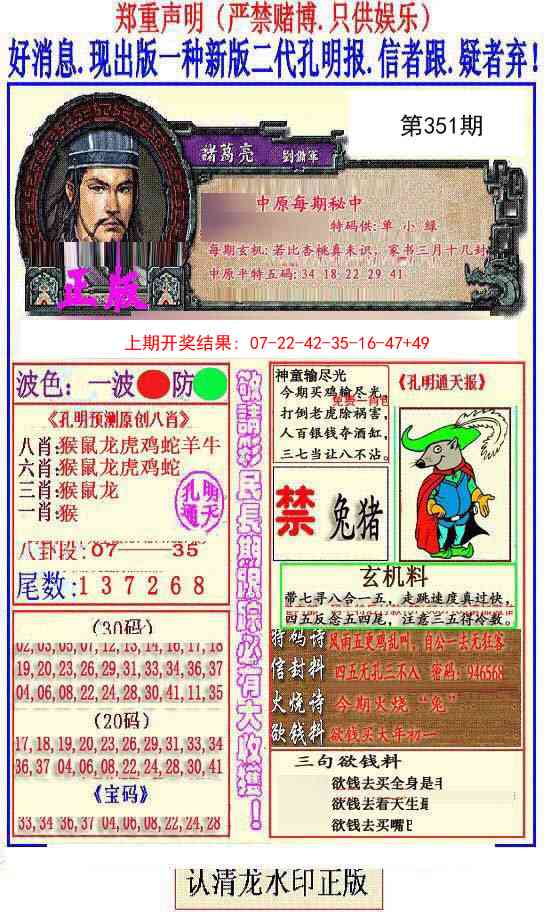 郑重声明（严禁赌博.只供娱乐）
好消息.现出版一种新版二代孔明报.信者跟.疑者弃!
第351期
諸葛亮 劉備軍
中原每期秘中
特码供:单 小 绿
每期玄机:若比杏桃真未识，家书三月十几封
中原平特五码: 34 18 22 29 41
正版
上期开奖结果: 07-22-42-35-16-47+49
波色：一波 防
《孔明预测原创八肖》
八肖:猴鼠龙虎鸡蛇羊牛
六肖:猴鼠龙虎鸡蛇
三肖:猴鼠龙
一肖:猴
孔明
通天
八卦段:07——35
尾数:137268
(30码)
02,03,05,07,12,13,14,16,17,18
19,20,23,26,29,31,33,34,36,37
04,06,08,22,24,28,30,41,11,35
(20码)
17,18,19,20,23,26,29,31,33,34
36,37,04,06,08,22,24,28,30,41
《宝码》
33,34,36,37,04,06,08,22,24,28
敬請彩民長期跟踪必有大收獲！
神童输尽光
今期买鸡输尽光，
打倒老虎除祸害，
人百银钱夺酒缸，
三七当让八不沾。
《孔明通天报》
禁 兔猪
玄机料
带七寻八合一五，走跳速度真过快，
四五反怱五四尾，注意三五得冷数。
特码诗 风雨五更鸡乱叫，自公一去无狂客
信封料 四五无孔三不入 密码：946568
火烧诗 今期火烧“兔”
欲钱料 欲钱买大年初一
三句欲钱料
欲钱去买全身是
欲钱去看天生
欲钱去买嘴
认清龙水印正版